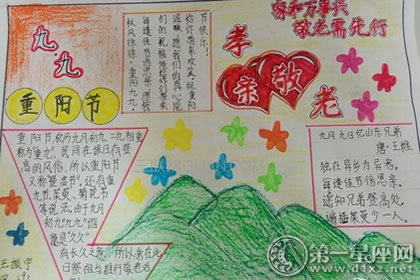 家和万事兴
敬老需先行
九九
重阳节
孝亲敬老
秋风徐徐,重阳九九。
每逢佳节倍思亲
给你带来欢笑。祝重阳
节快乐!
重阳节,农历九月初九,二九相重,
称为"重九",民间在该日有登
高的风俗,所以重阳节
又称登高节。还有重
九节、茱萸、菊花节
等说法。由于九月
初九"九九"谐音
是"久久"
有长久之意,所以常在此
日祭祖与推行敬老活
九月九日忆山东兄弟
唐:王维
独在异乡为异客,
每逢佳节倍思亲。
遥知兄弟登高处,
遍插茱萸少一人。
第一星座网
www.d1xz.net